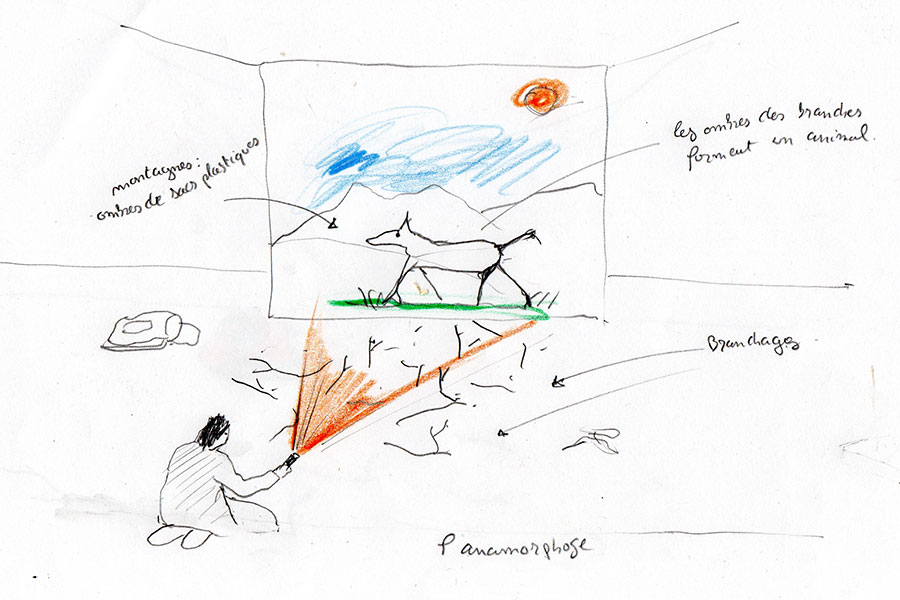 montagnes:
ombres de sacs plastiques
les ombres des branches
forment un animal.
Branchages
l'anamorphose